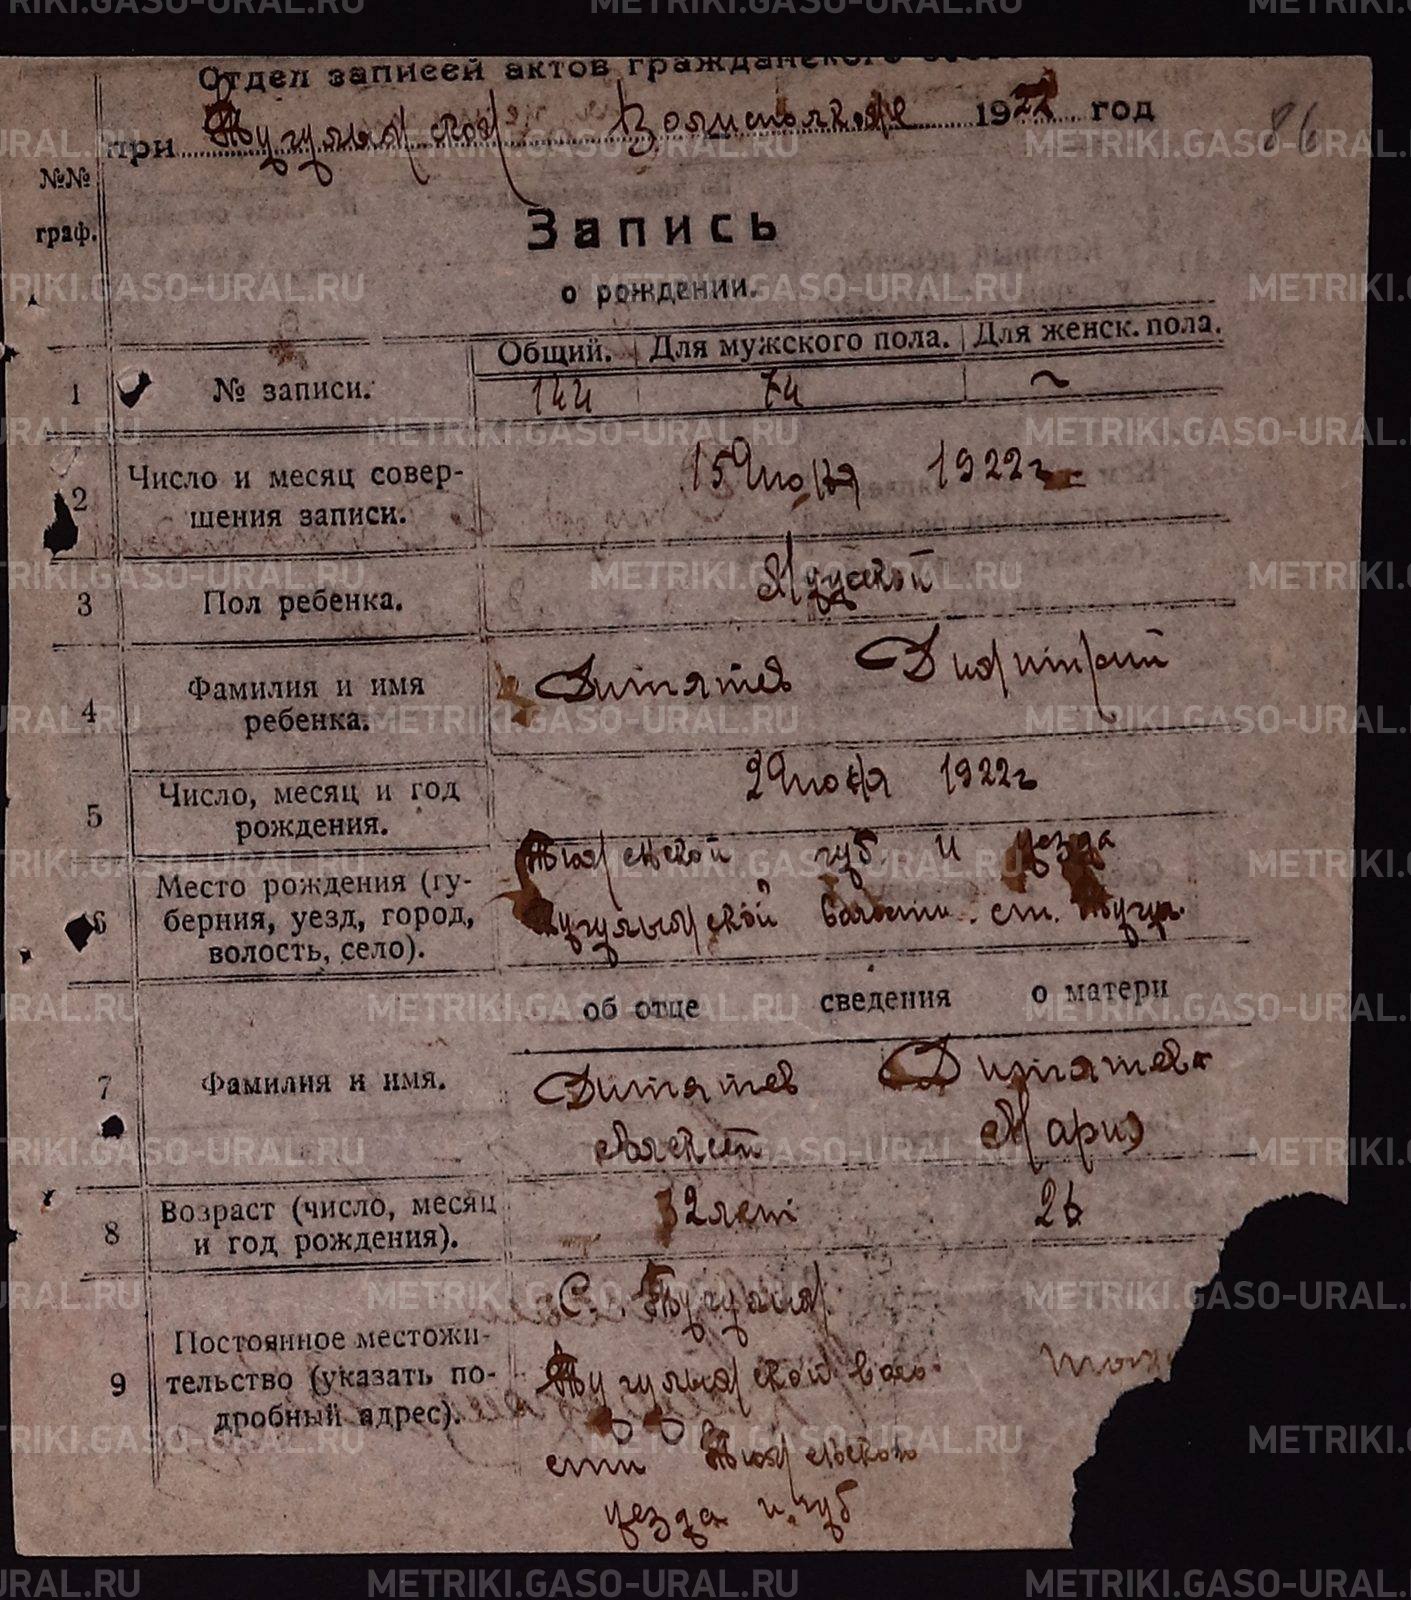 Отдел записей актов гражданского
при Тугулымском Волисполкоме 1922 год
86
№№
граф.
Запись
о рождении.
Общий. Для мужского пола. Для женск. пола.
1 № записи. 144 74 ~
2 Число и месяц совер-
шения записи.
15 Июня 1922 г.
3 Пол ребенка. Мужской
4 Фамилия и имя
ребенка.
Дитятев Димитрий
5 Число, месяц и год
рождения.
2 Июня 1922 г
6 Место рождения (гу-
берния, уезд, город,
волость, село).
Тюменской губ. и уезда
Тугулымской волости. ст. Тугул.
об отце сведения о матери
7 Фамилия и имя.
Дитятев Дитятева
Алексей Мария
8 Возраст (число, месяц
и год рождения).
32 лет 26
9 Постоянное местожи-
тельство (указать по-
дробный адрес).
С. Тугулым
Тугулымской воло-
сти Тюменского
уезда и губ
METRIKI.GASO-URAL.RU